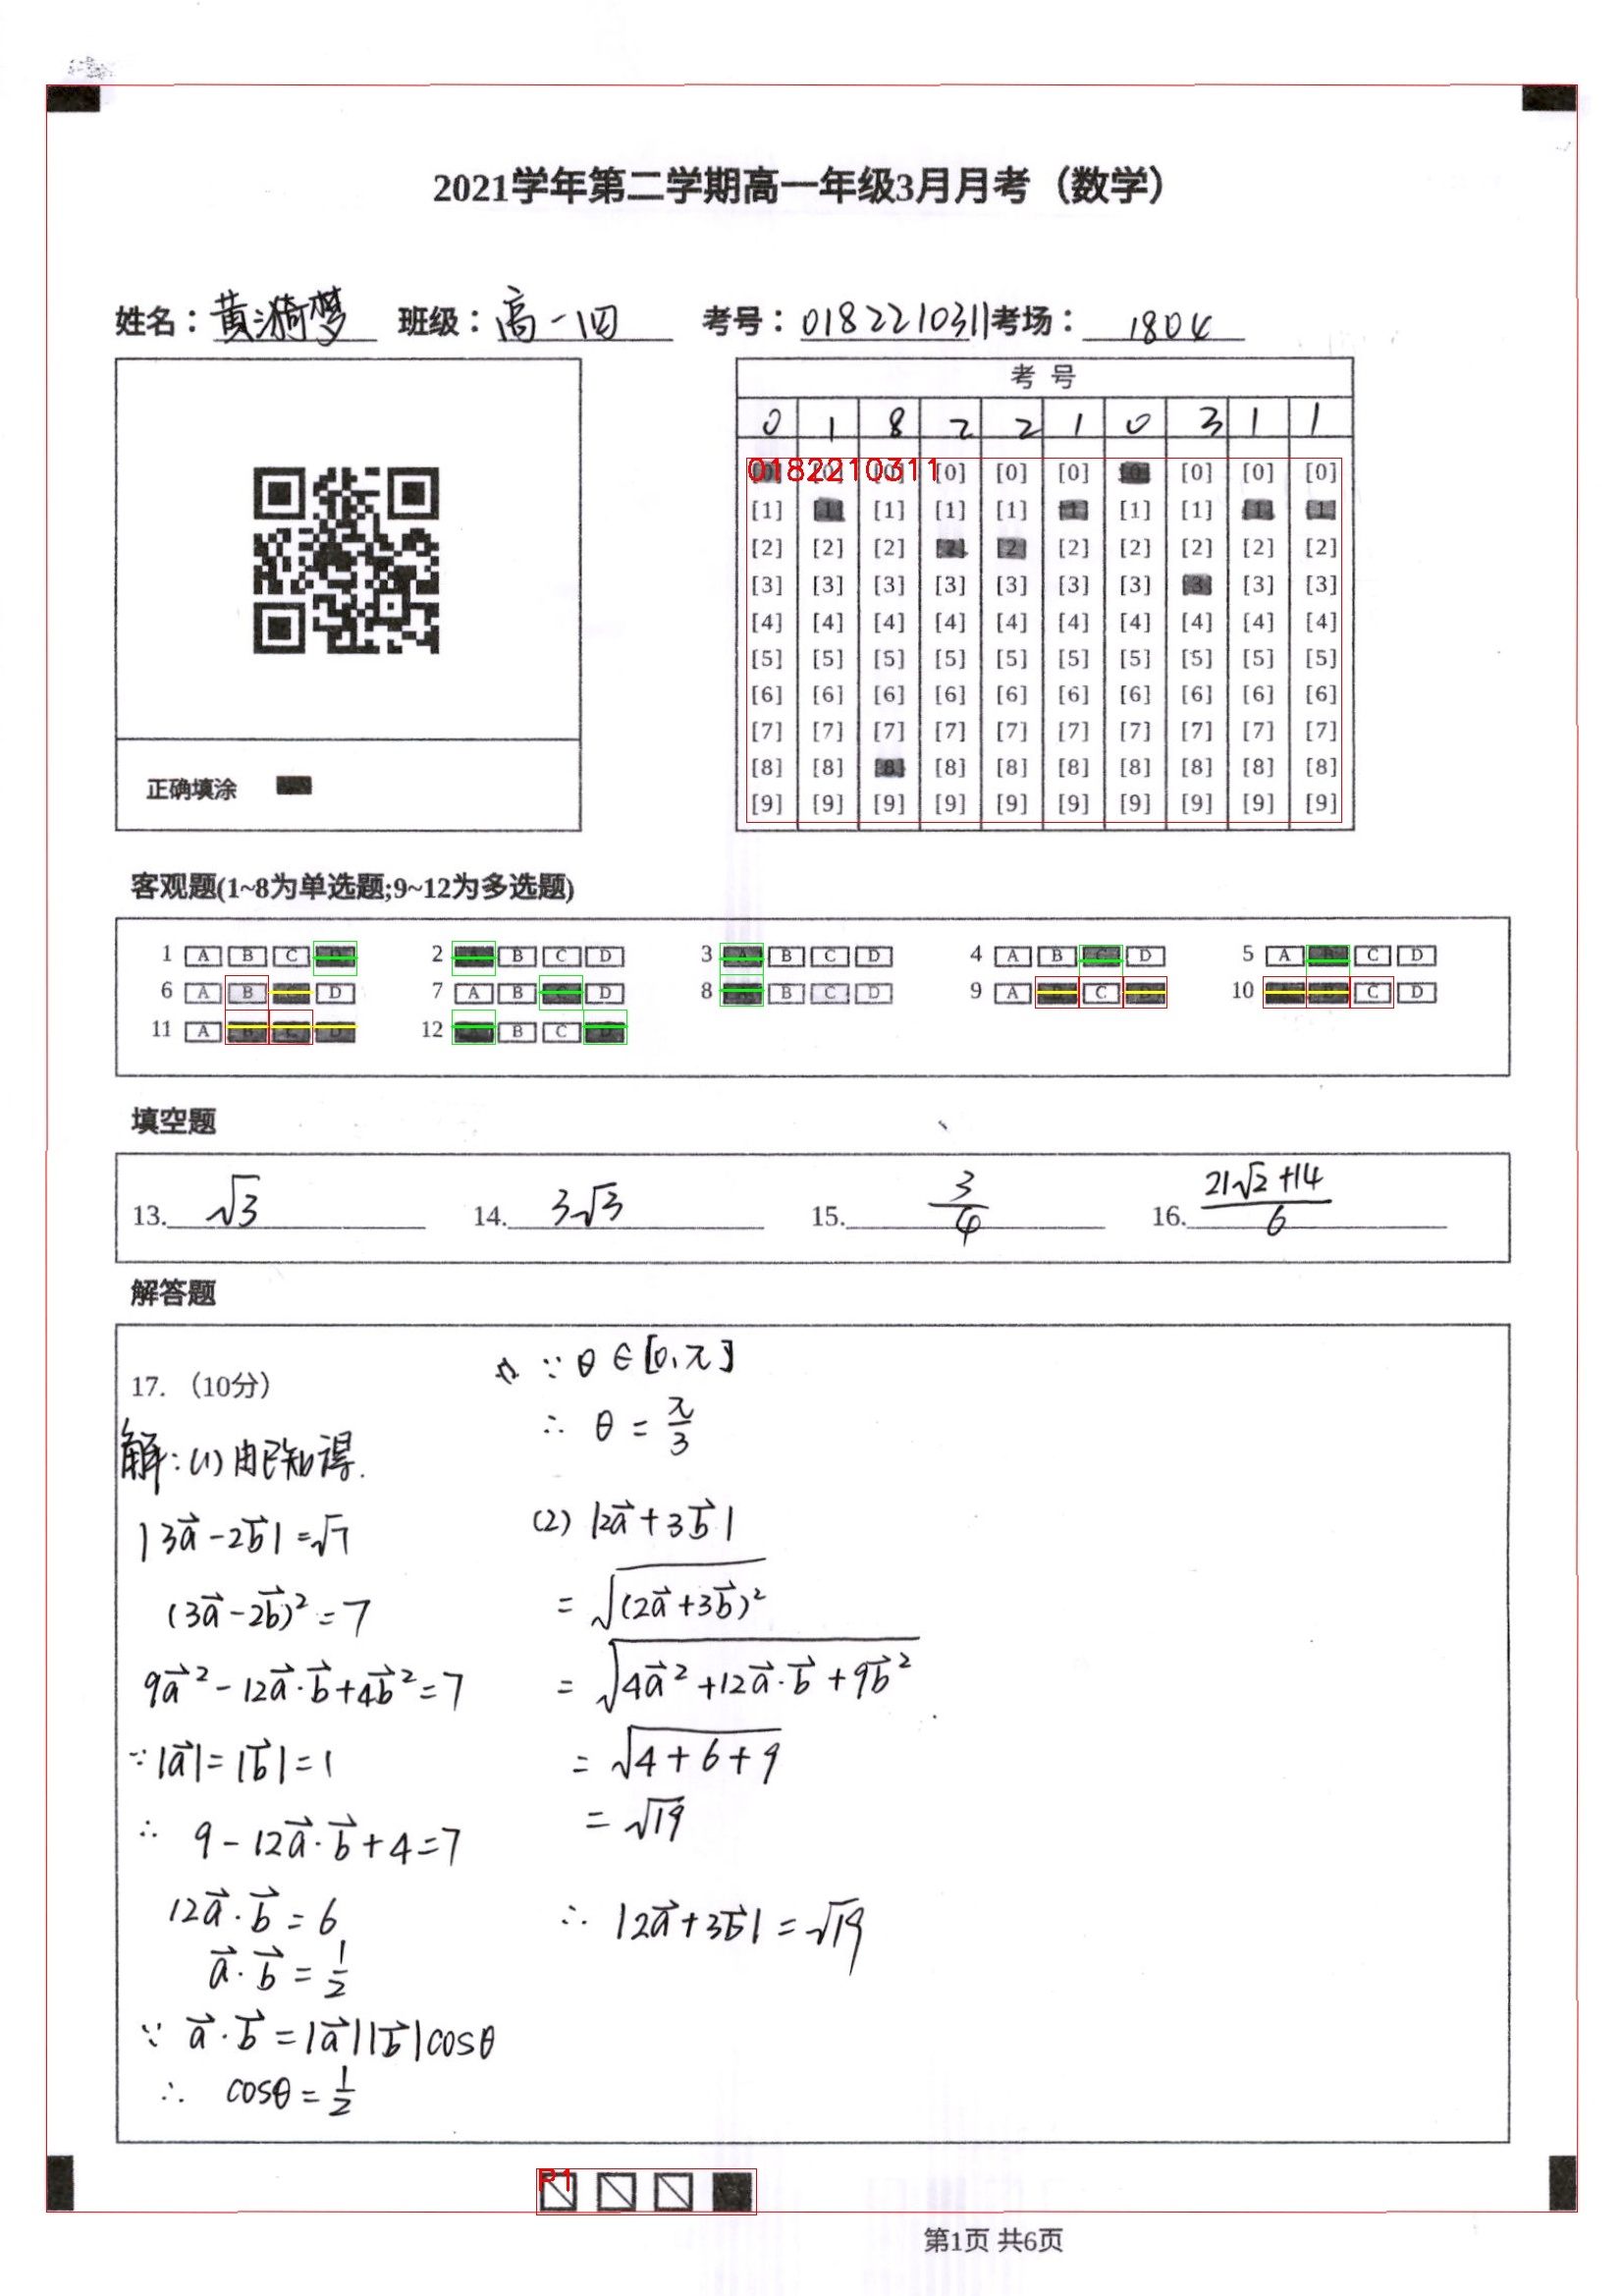 2021学年第二学期高一年级3月月考（数学）
姓名：黄漪梦 班级：高一四 考号：0182210311 考场：1804
考 号
0 1 8 2 2 1 0 3 1 1
0182210311
[0] [0] [0] [0] [0] [0] [0] [0] [0] [0]
[1] [1] [1] [1] [1] [1] [1] [1] [1] [1]
[2] [2] [2] [2] [2] [2] [2] [2] [2] [2]
[3] [3] [3] [3] [3] [3] [3] [3] [3] [3]
[4] [4] [4] [4] [4] [4] [4] [4] [4] [4]
[5] [5] [5] [5] [5] [5] [5] [5] [5] [5]
[6] [6] [6] [6] [6] [6] [6] [6] [6] [6]
[7] [7] [7] [7] [7] [7] [7] [7] [7] [7]
[8] [8] [8] [8] [8] [8] [8] [8] [8] [8]
[9] [9] [9] [9] [9] [9] [9] [9] [9] [9]
正确填涂
客观题(1~8为单选题;9~12为多选题)
1 A B C D 2 A B C D 3 A B C D 4 A B C D 5 A B C D
6 A B C D 7 A B C D 8 A B C D 9 A B C D 10 A B C D
11 A B C D 12 A B C D
填空题
13. √3 14. 3√3 15. 3/4 16. (21√2+14)/6
解答题
17.（10分）
解：(1) 由已知得.
|3a⃗-2b⃗|=√7
(3a⃗-2b⃗)²=7
9a⃗²-12a⃗·b⃗+4b⃗²=7
∵|a⃗|=|b⃗|=1
∴ 9-12a⃗·b⃗+4=7
12a⃗·b⃗=6
a⃗·b⃗=1/2
∵ a⃗·b⃗=|a⃗||b⃗|cosθ
∴ cosθ=1/2
又∵θ∈[0,π]
∴ θ=π/3
(2) |2a⃗+3b⃗|
=√((2a⃗+3b⃗)²)
=√(4a⃗²+12a⃗·b⃗+9b⃗²)
=√(4+6+9)
=√19
∴ |2a⃗+3b⃗|=√19
P1
第1页 共6页